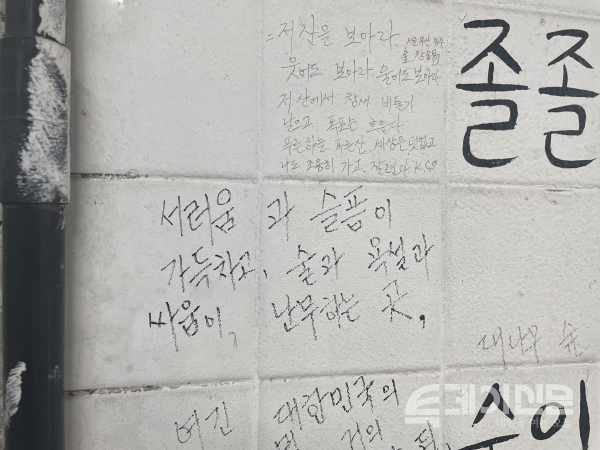 = 저 산을 보아라.
웃어도 보아라 울어도 보아라
저 산에서 참새 비둘기
날으고 폭포는 흐른다
푸른하늘 푸른산 세상은 덧없고
나도 조용히 가고.
졸졸
서러움 과 슬픔이
가득차고, 술과 욕설과
싸움이, 난무하는 곳,
대나무 숲
여긴 대한민국의
거의
수이
투데이신문